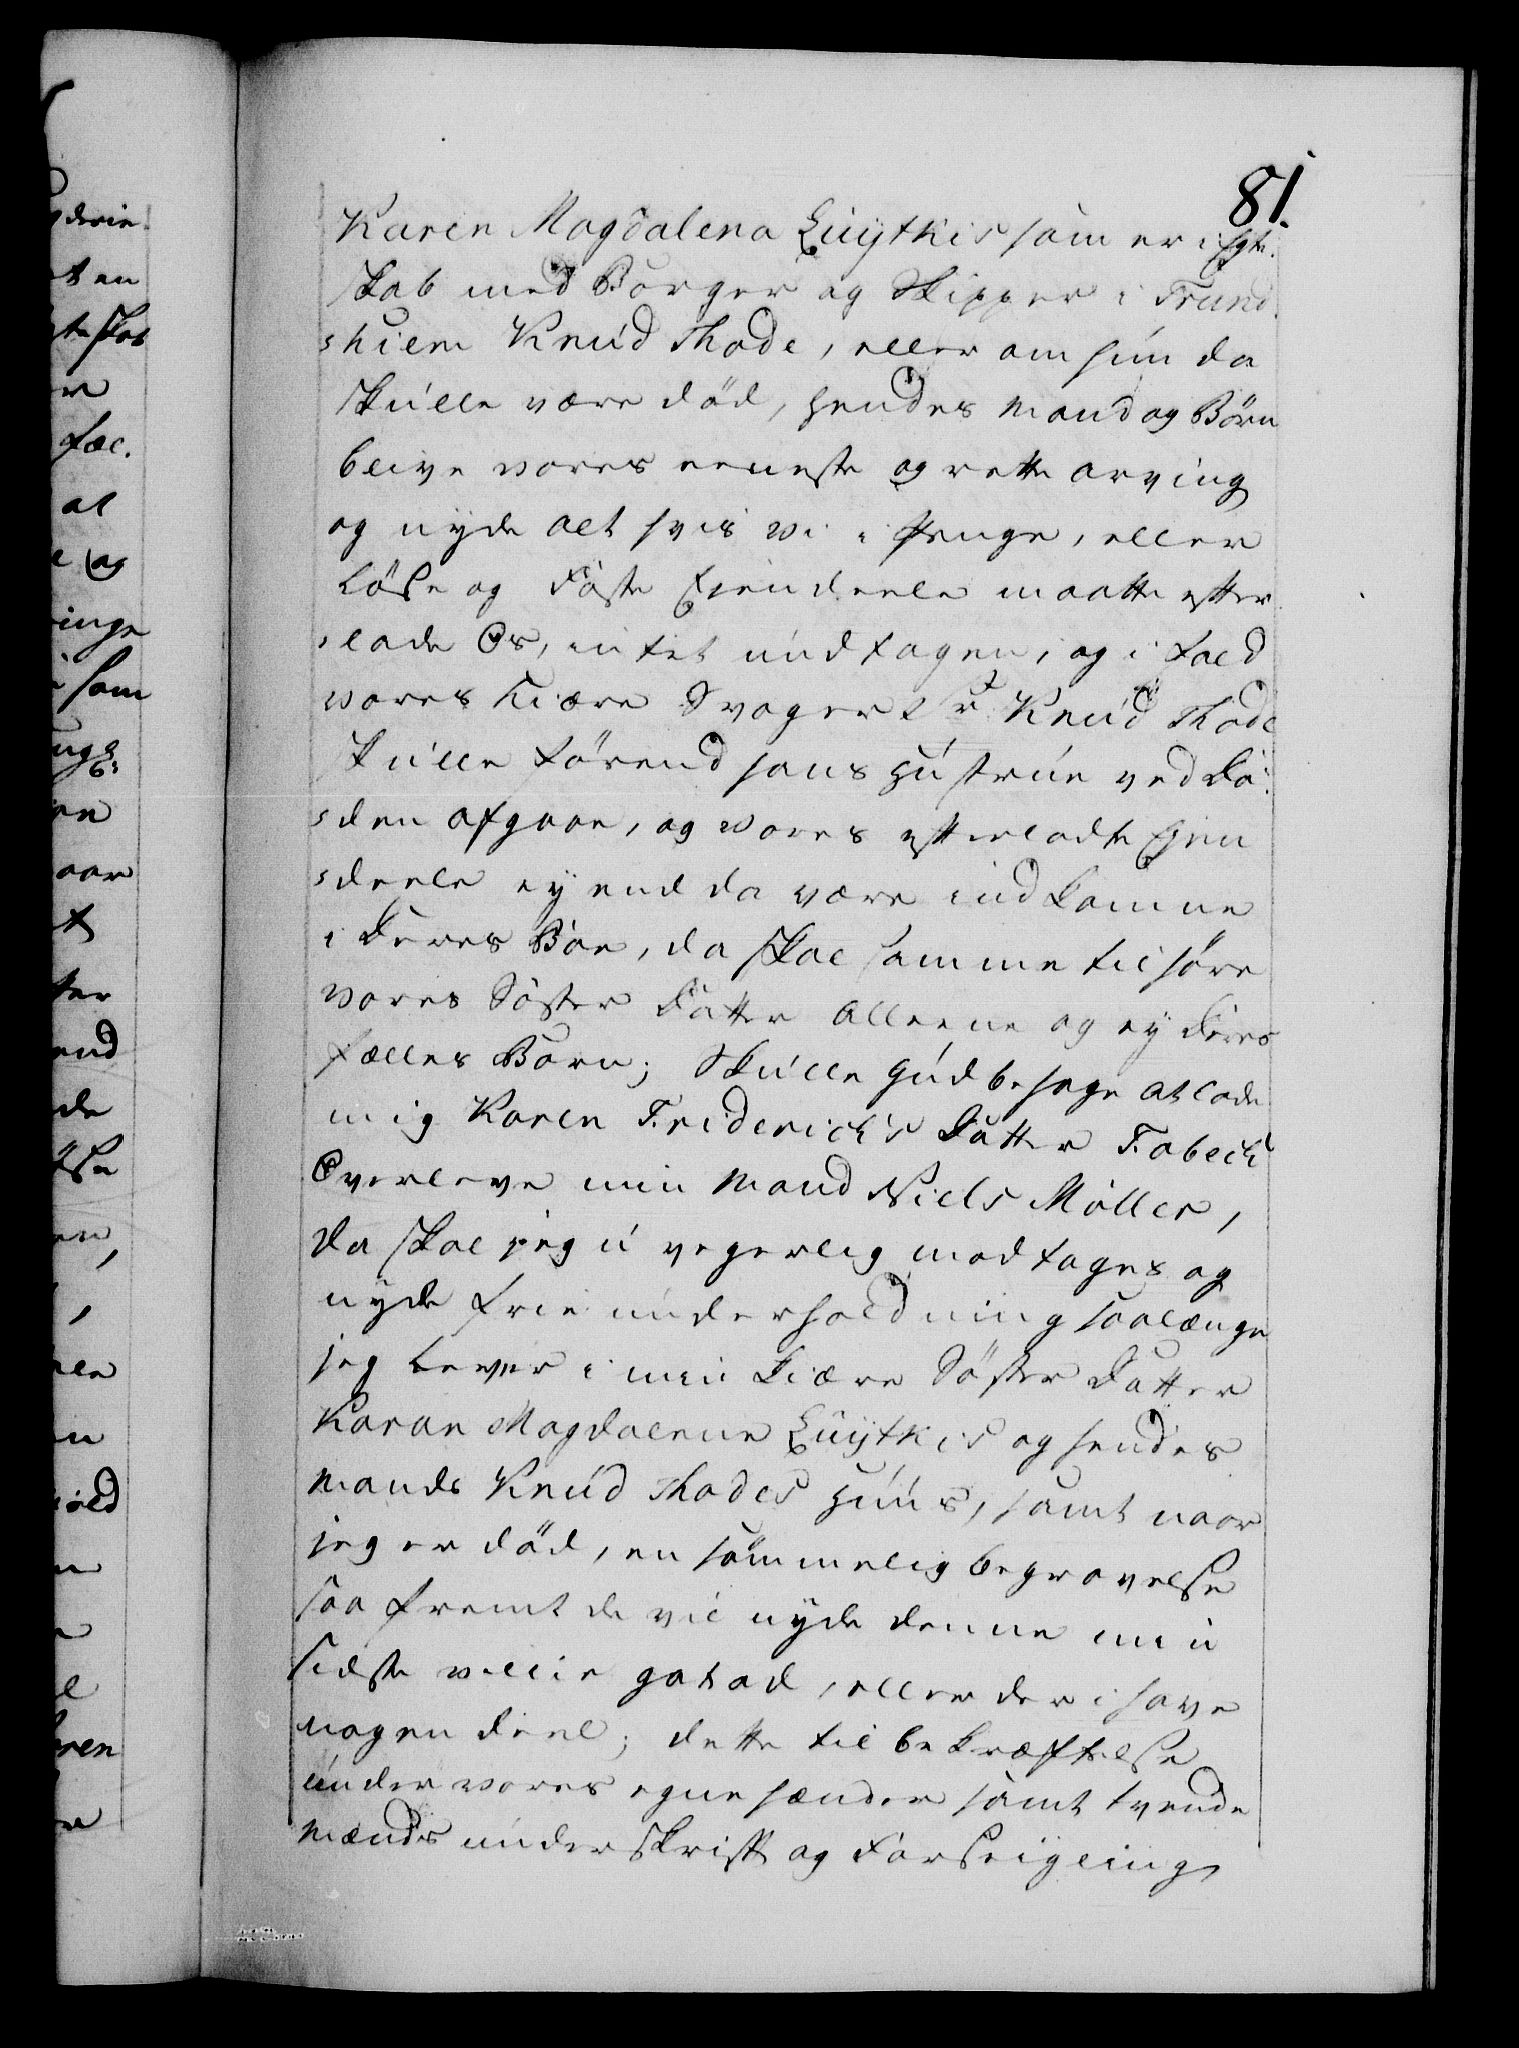 81.
Karen Magdalena Luÿtkis som er i Egte-
skab med Borger og Skipper i Trund-
-hiem Knud Thode, eller om hun da
skulle være död, hendes Mand og Börn
blive vores eeneste og rette arving
og nyde alt hvis vi i Penge, eller
Löse og Faste Ejendeele maatte efter-
-lade Os, intet undtagen, og i fald
vores kiære Svoger Sr Knud Thode
skulle förend hans Hustrue ved Dö-
-den afgaae, og vores efterladte Ejen
-deele ey end da være indkomne
i Deres Boe, da skal samme tilhöre
vores Söster Datter alleene og ey Deres
fælles Börn; Skulle Gud behage at lade
mig Karen Friderich's Datter Fabech
Overleve min Mand Niels Möller,
da skal jeg u-vegerlig modtages og
nyde frie underholdning saalænge
jeg Lever i min kiære Söster Datter
Karen Magdalena Luÿtkis og hendes
Mands Knud Thodes Huus, samt naar
jeg er död, en sömmelig begravelse
saa fremt de vil nyde denne min
sidste villie gotad, eller der i have
nogen deel; dette til bekræftelse
under vores egne hænder samt tvende
Mænds underskrift og Forseigling,
ag
al
som